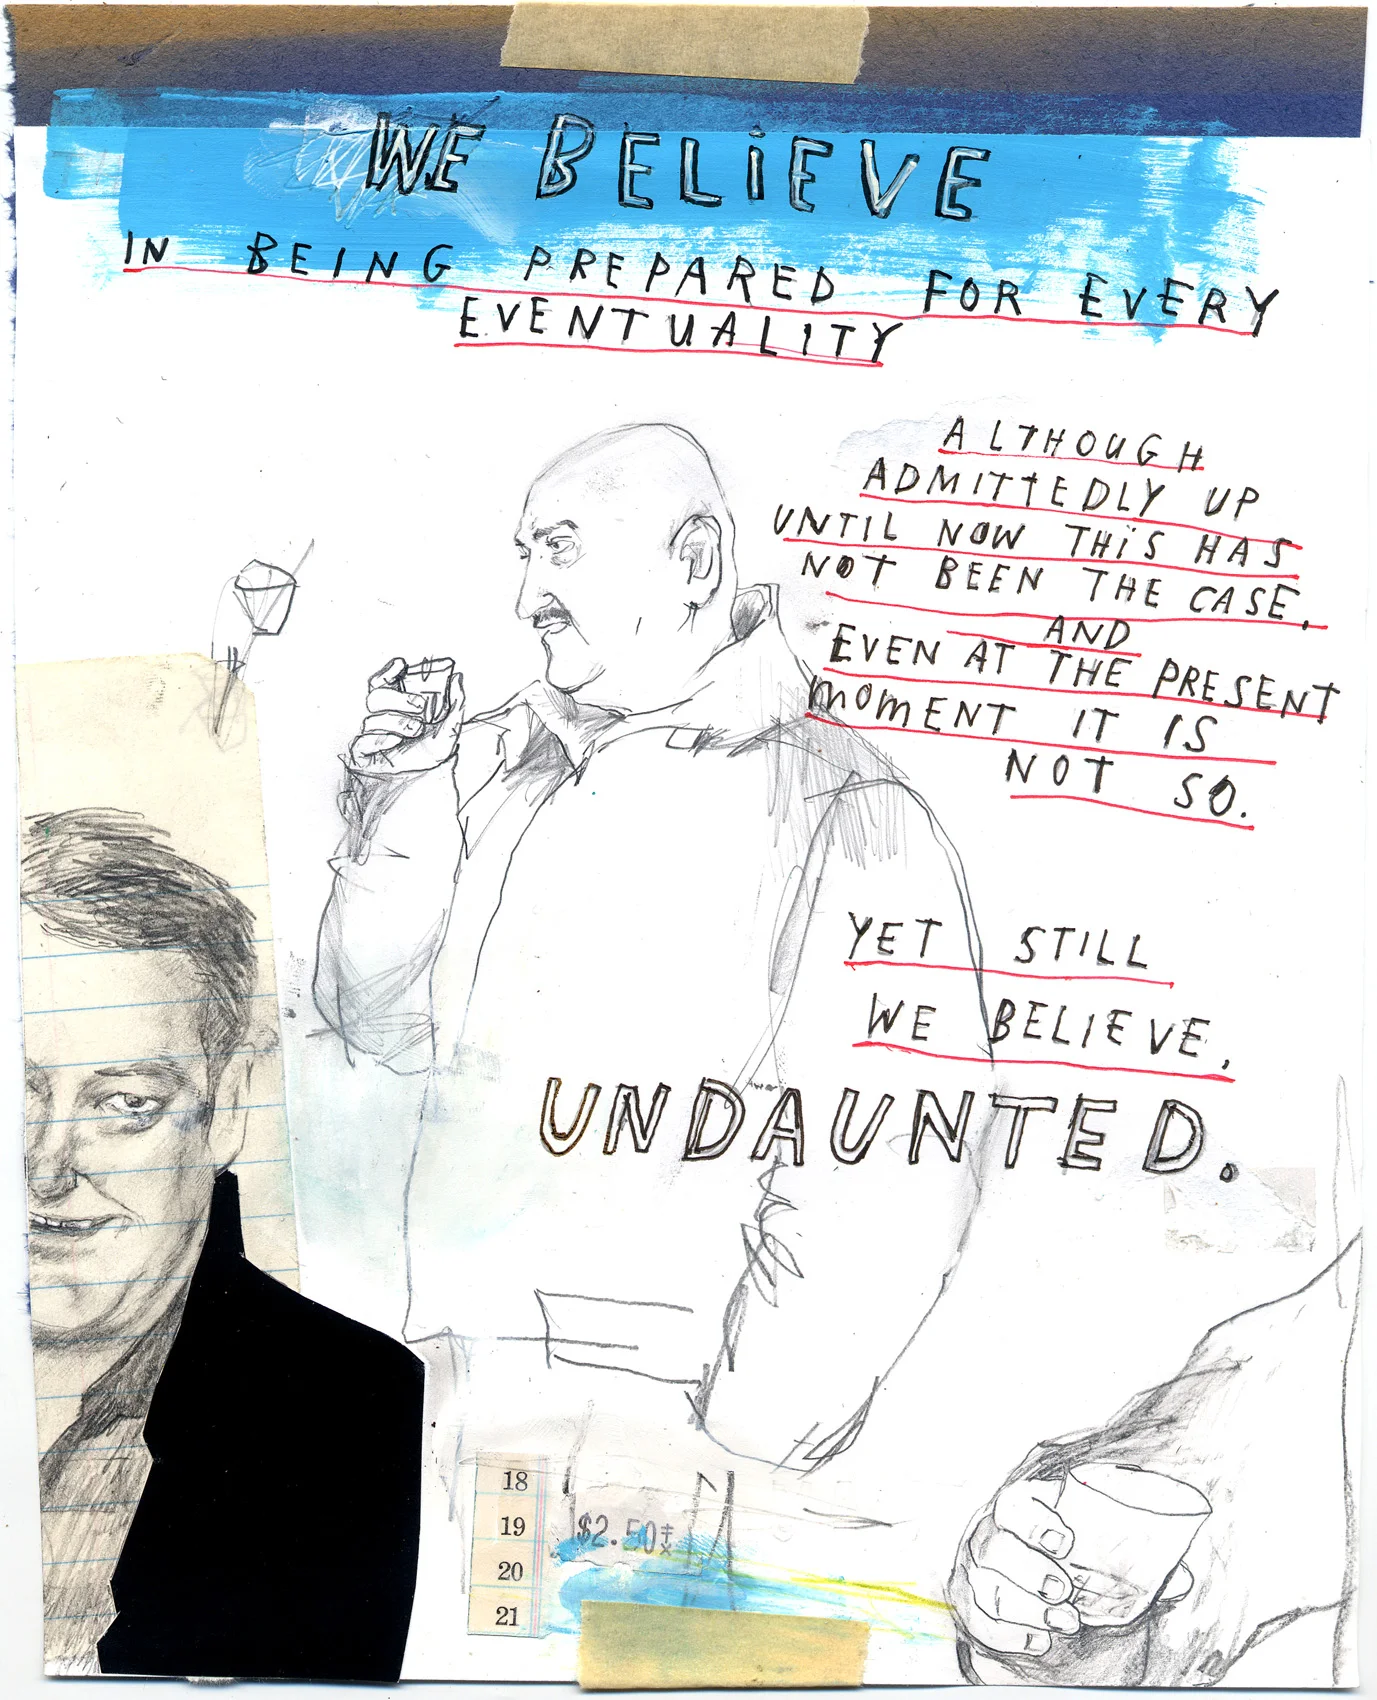 WE BELiEVE
IN BEING PREPARED FOR EVERY
EVENTUALITY
ALTHOUGH
ADMITTEDLY UP
UNTIL NOW THiS HAS
NOT BEEN THE CASE,
AND
EVEN AT THE PRESENT
MOMENT IT IS
NOT SO.
YET STILL
WE BELIEVE,
UNDAUNTED.
18
19
$2.50
20
21